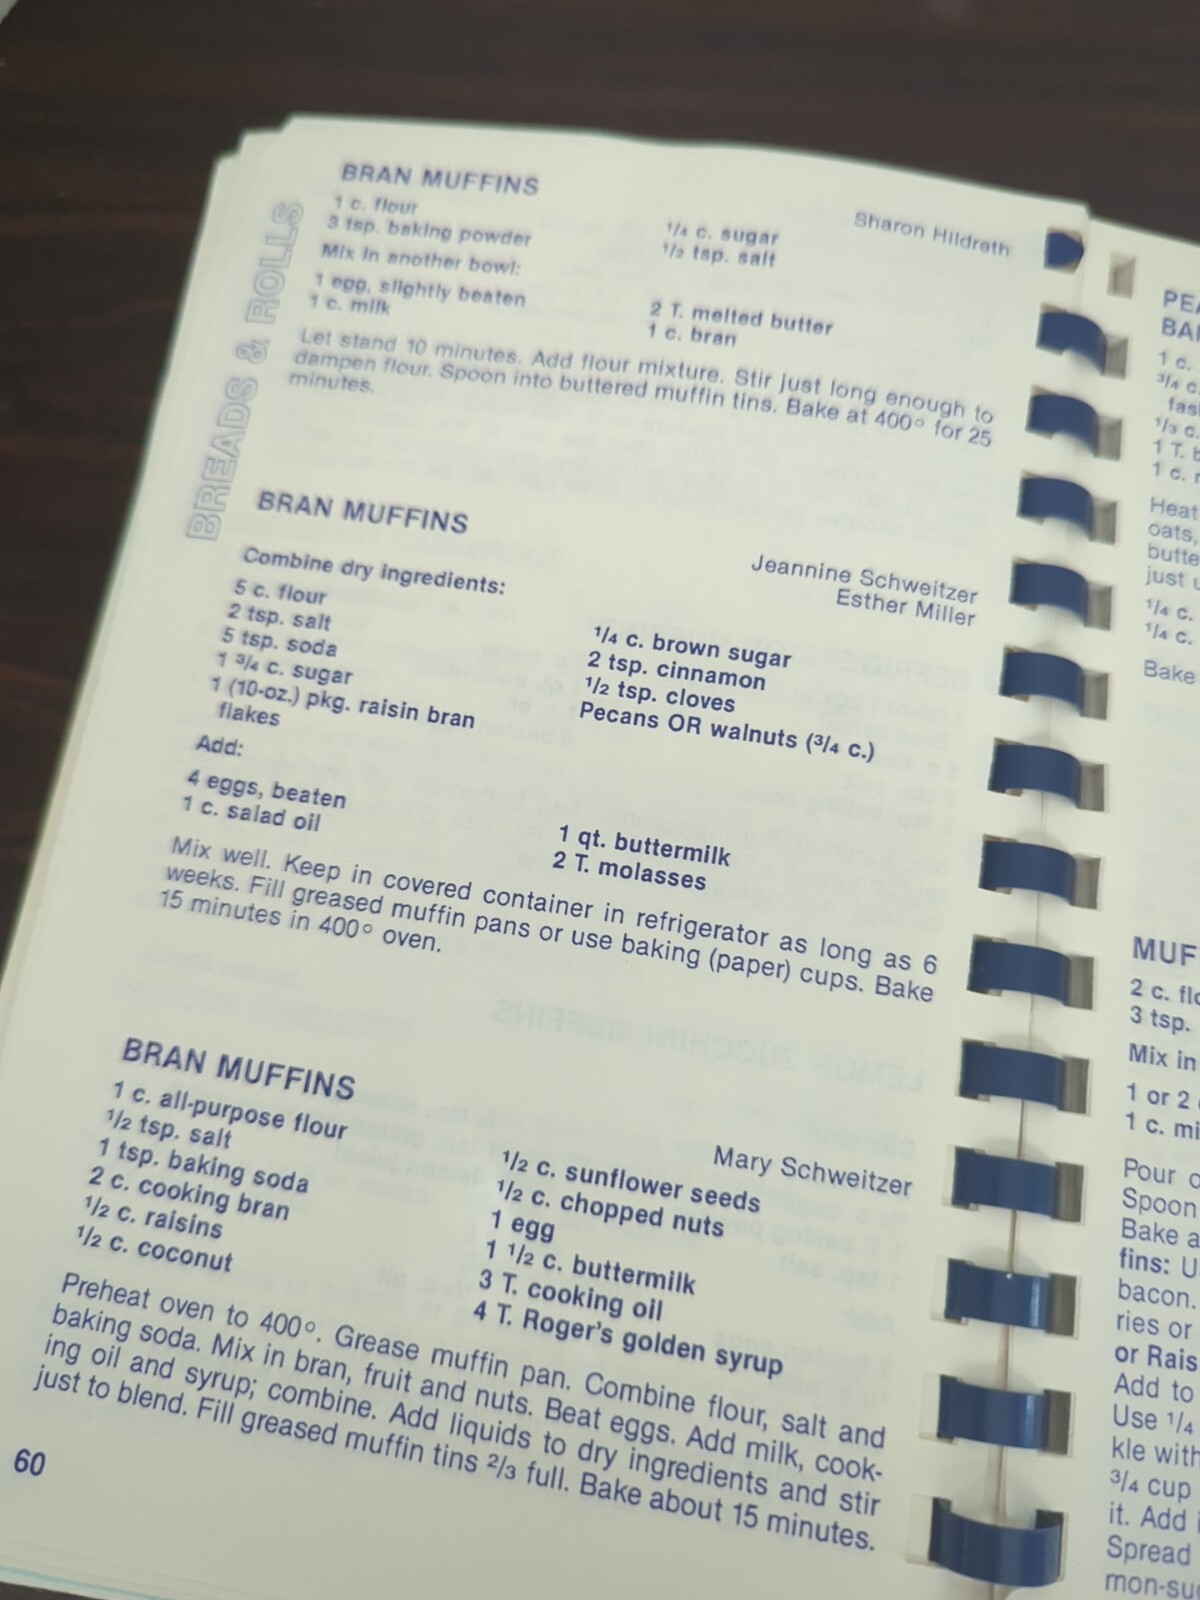 BREADS & ROLLS
BRAN MUFFINS
Sharon Hildreth
1 c. flour
3 tsp. baking powder
1/4 c. sugar
1/2 tsp. salt
Mix in another bowl:
1 egg, slightly beaten
1 c. milk
2 T. melted butter
1 c. bran
Let stand 10 minutes. Add flour mixture. Stir just long enough to
dampen flour. Spoon into buttered muffin tins. Bake at 400° for 25
minutes.
BRAN MUFFINS
Jeannine Schweitzer
Esther Miller
Combine dry ingredients:
5 c. flour
2 tsp. salt
5 tsp. soda
1 3/4 c. sugar
1 (10-oz.) pkg. raisin bran
flakes
1/4 c. brown sugar
2 tsp. cinnamon
1/2 tsp. cloves
Pecans OR walnuts (3/4 c.)
Add:
4 eggs, beaten
1 c. salad oil
1 qt. buttermilk
2 T. molasses
Mix well. Keep in covered container in refrigerator as long as 6
weeks. Fill greased muffin pans or use baking (paper) cups. Bake
15 minutes in 400° oven.
BRAN MUFFINS
Mary Schweitzer
1 c. all-purpose flour
1/2 tsp. salt
1 tsp. baking soda
2 c. cooking bran
1/2 c. raisins
1/2 c. coconut
1/2 c. sunflower seeds
1/2 c. chopped nuts
1 egg
1 1/2 c. buttermilk
3 T. cooking oil
4 T. Roger's golden syrup
Preheat oven to 400°. Grease muffin pan. Combine flour, salt and
baking soda. Mix in bran, fruit and nuts. Beat eggs. Add milk, cook-
ing oil and syrup; combine. Add liquids to dry ingredients and stir
just to blend. Fill greased muffin tins 2/3 full. Bake about 15 minutes.
60
PEA
BA
1 c.
3/4 c.
fas
1/3 c.
1 T. b
1 c. r
Heat
oats,
butte
just u
1/4 c.
1/4 c.
Bake
MUF
2 c. flo
3 tsp.
Mix in
1 or 2
1 c. mi
Pour o
Spoon
Bake a
fins: U
bacon.
ries or
or Rais
Add to
Use 1/4
kle with
3/4 cup
it. Add
Spread
mon-su